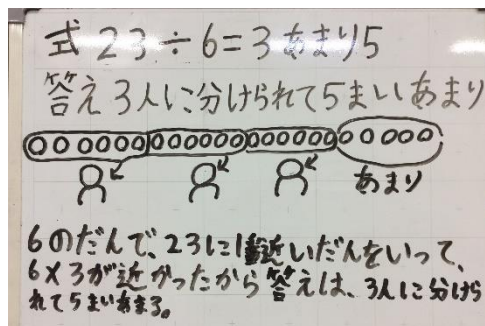 式 23÷6=3あまり5
答え3人に分けられて5まいあまり
あまり
6のだんで、23に1番近いだんをいって、
6×3が近かったから答えは、3人に分けら
れて5まいあまる。